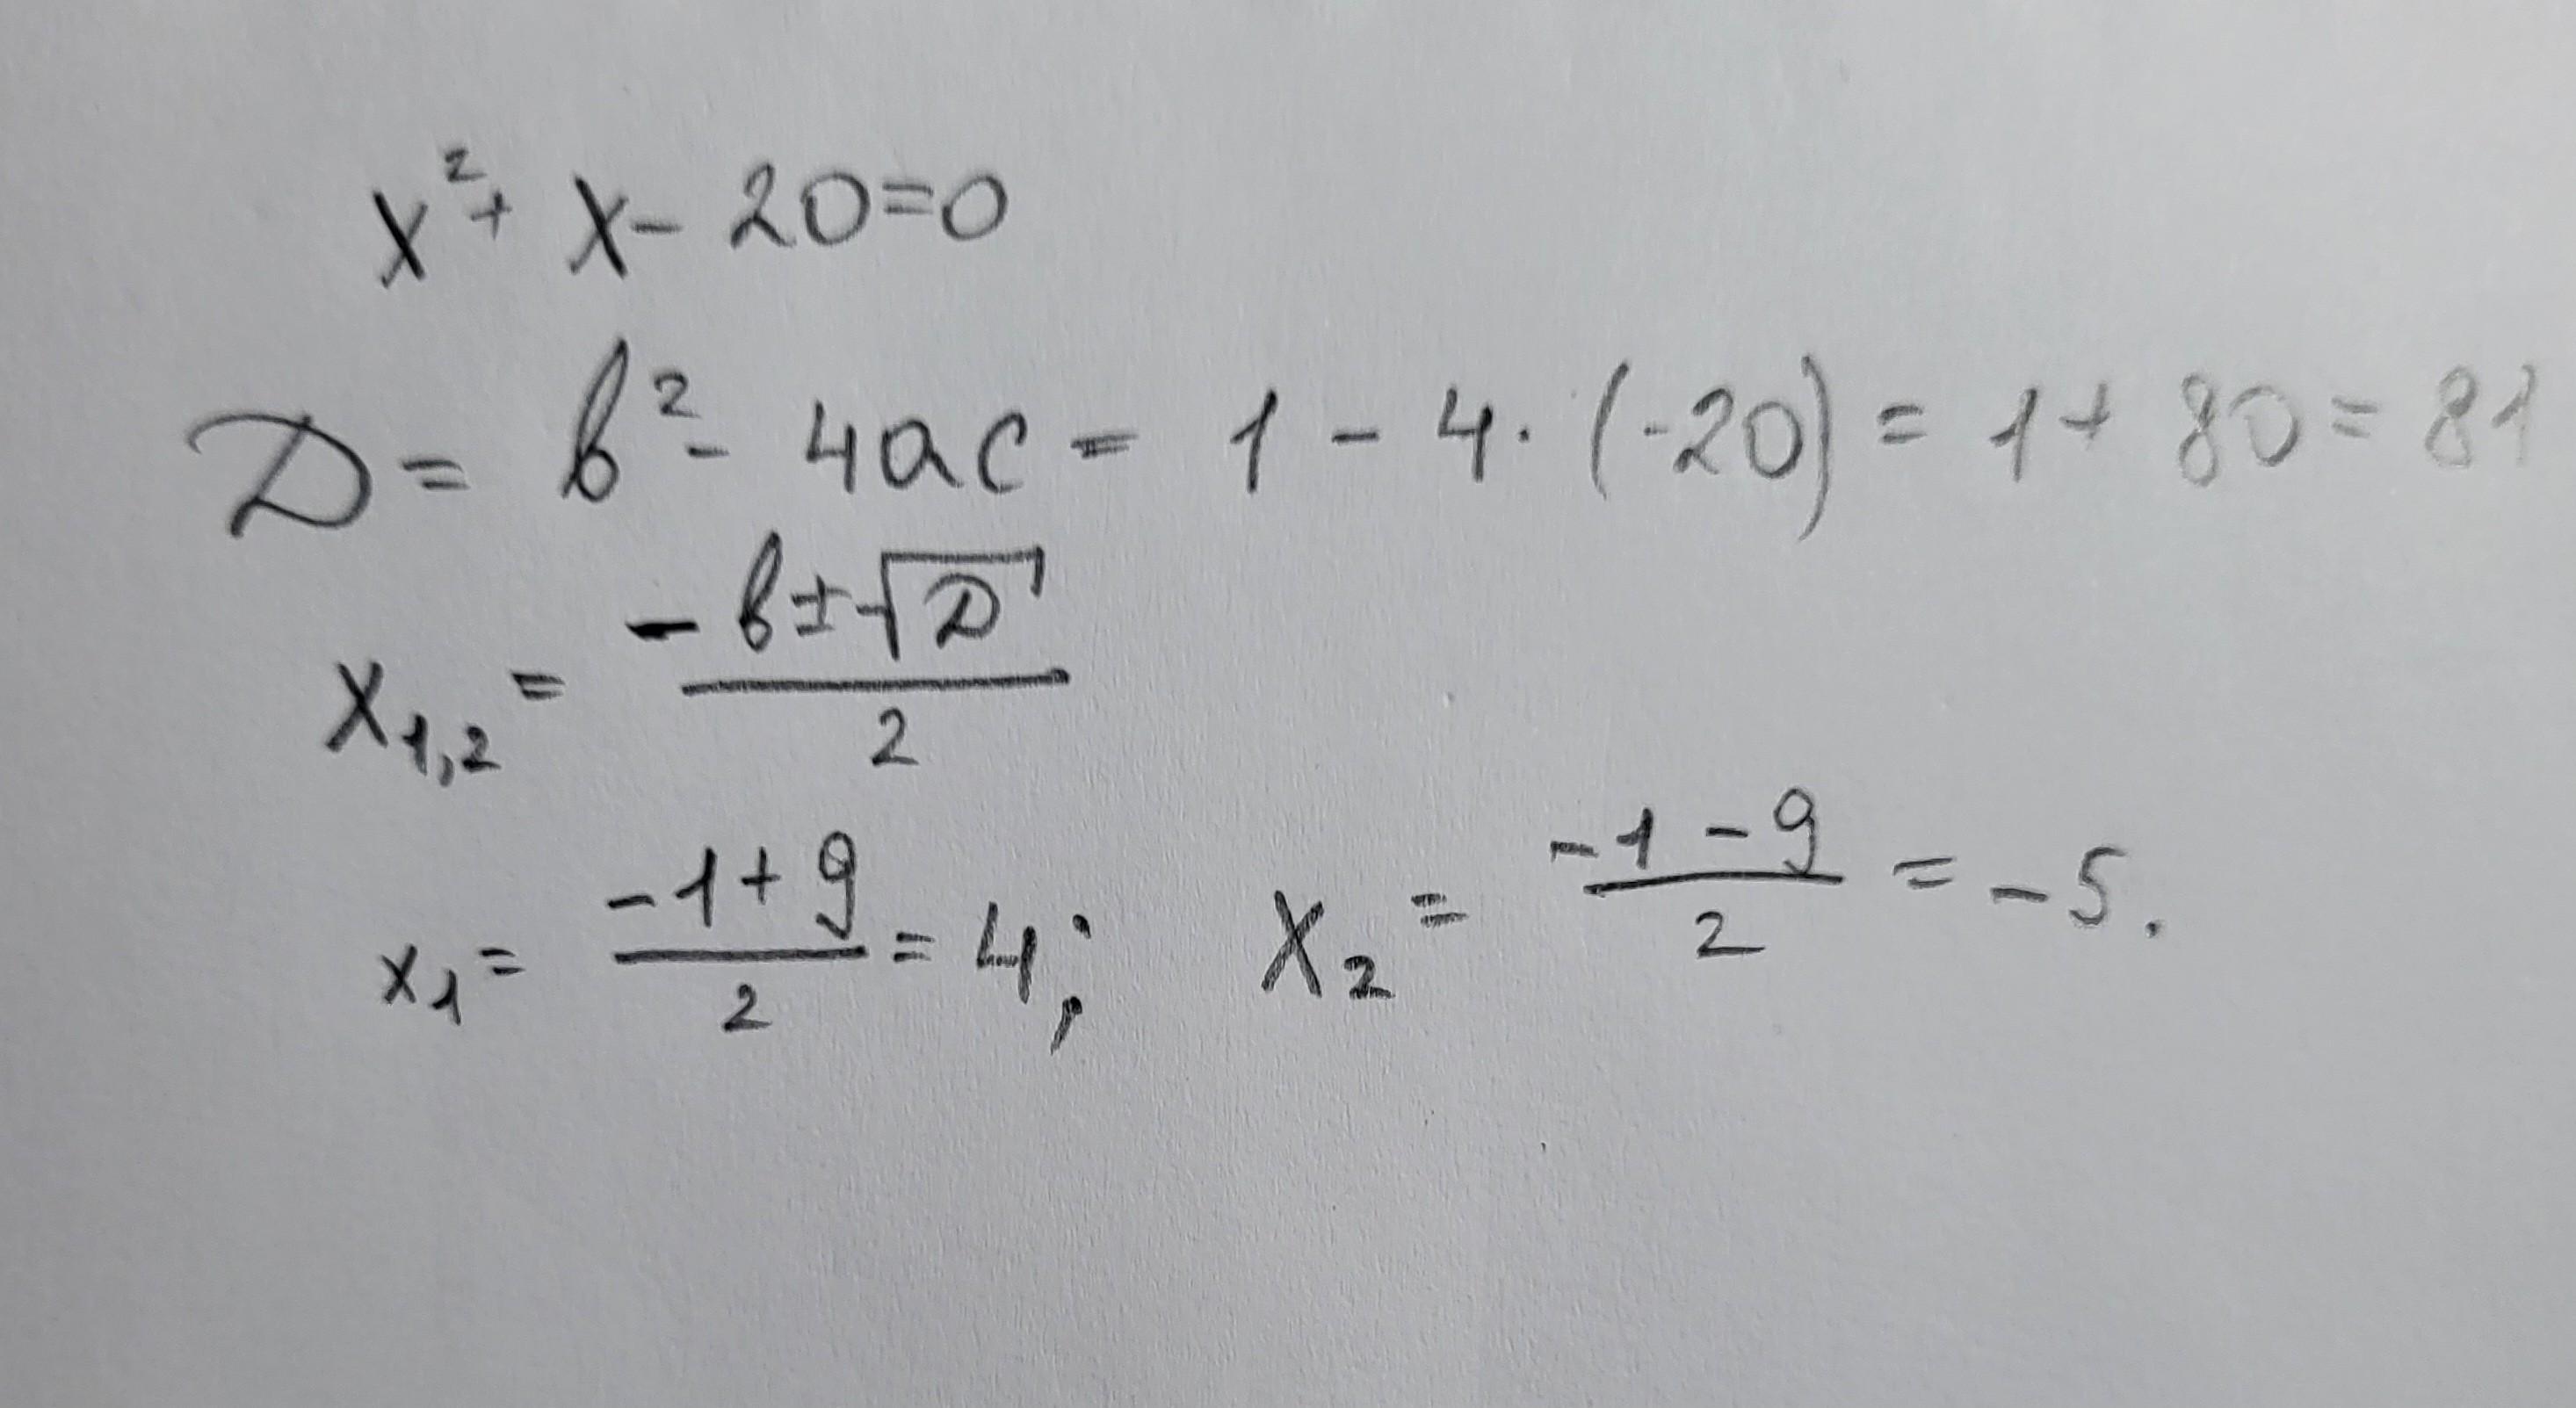 x² + x - 20 = 0
D = b² - 4ac = 1 - 4 · (-20) = 1 + 80 = 81
x₁,₂ = (-b ± √D) / 2
x₁ = (-1 + 9) / 2 = 4; x₂ = (-1 - 9) / 2 = -5.